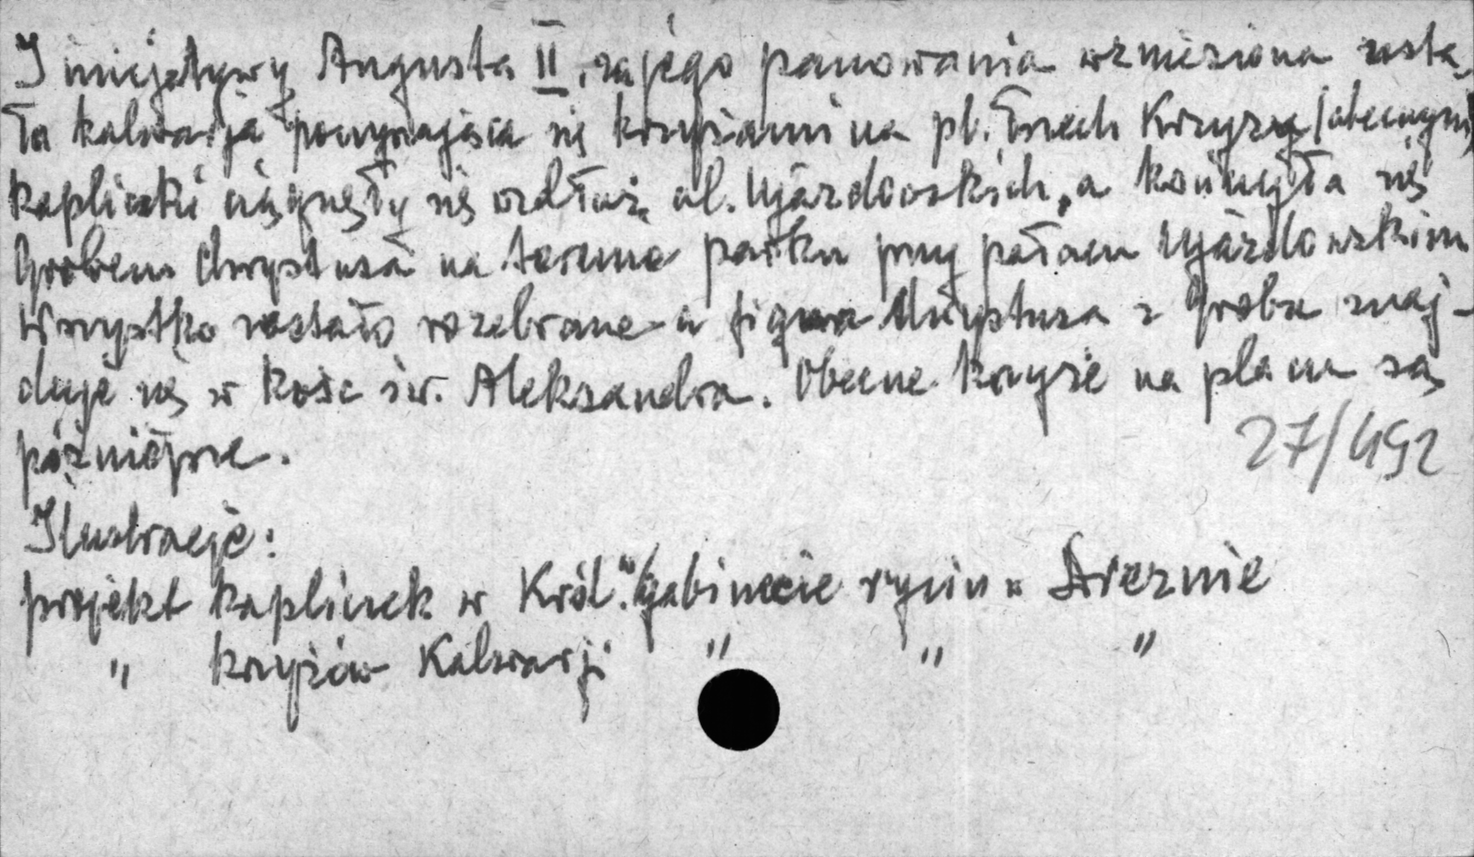 I inicjatywy Augusta II, za jego panowania wzniesiona zosta-
ła kalwarja poczynająca się krzyżami na pl. Trzech Krzyży (obecnym)
kapliczki ciągnęły się wzdłuż al. Ujazdowskich, a kończyła się
Grobem Chrystusa na terenie parku przy pałacu Ujazdowskim
Wszystko zostało rozebrane a figura Chrystusa z Grobu znaj-
duje się w kośc św. Aleksandra. Obecne krzyże na placu są
późniejsze.
27/492
Ilustracje:
projekt kapliczek w Król. Gabinecie rycin w Dreznie
" krzyżów Kalwarji " " "